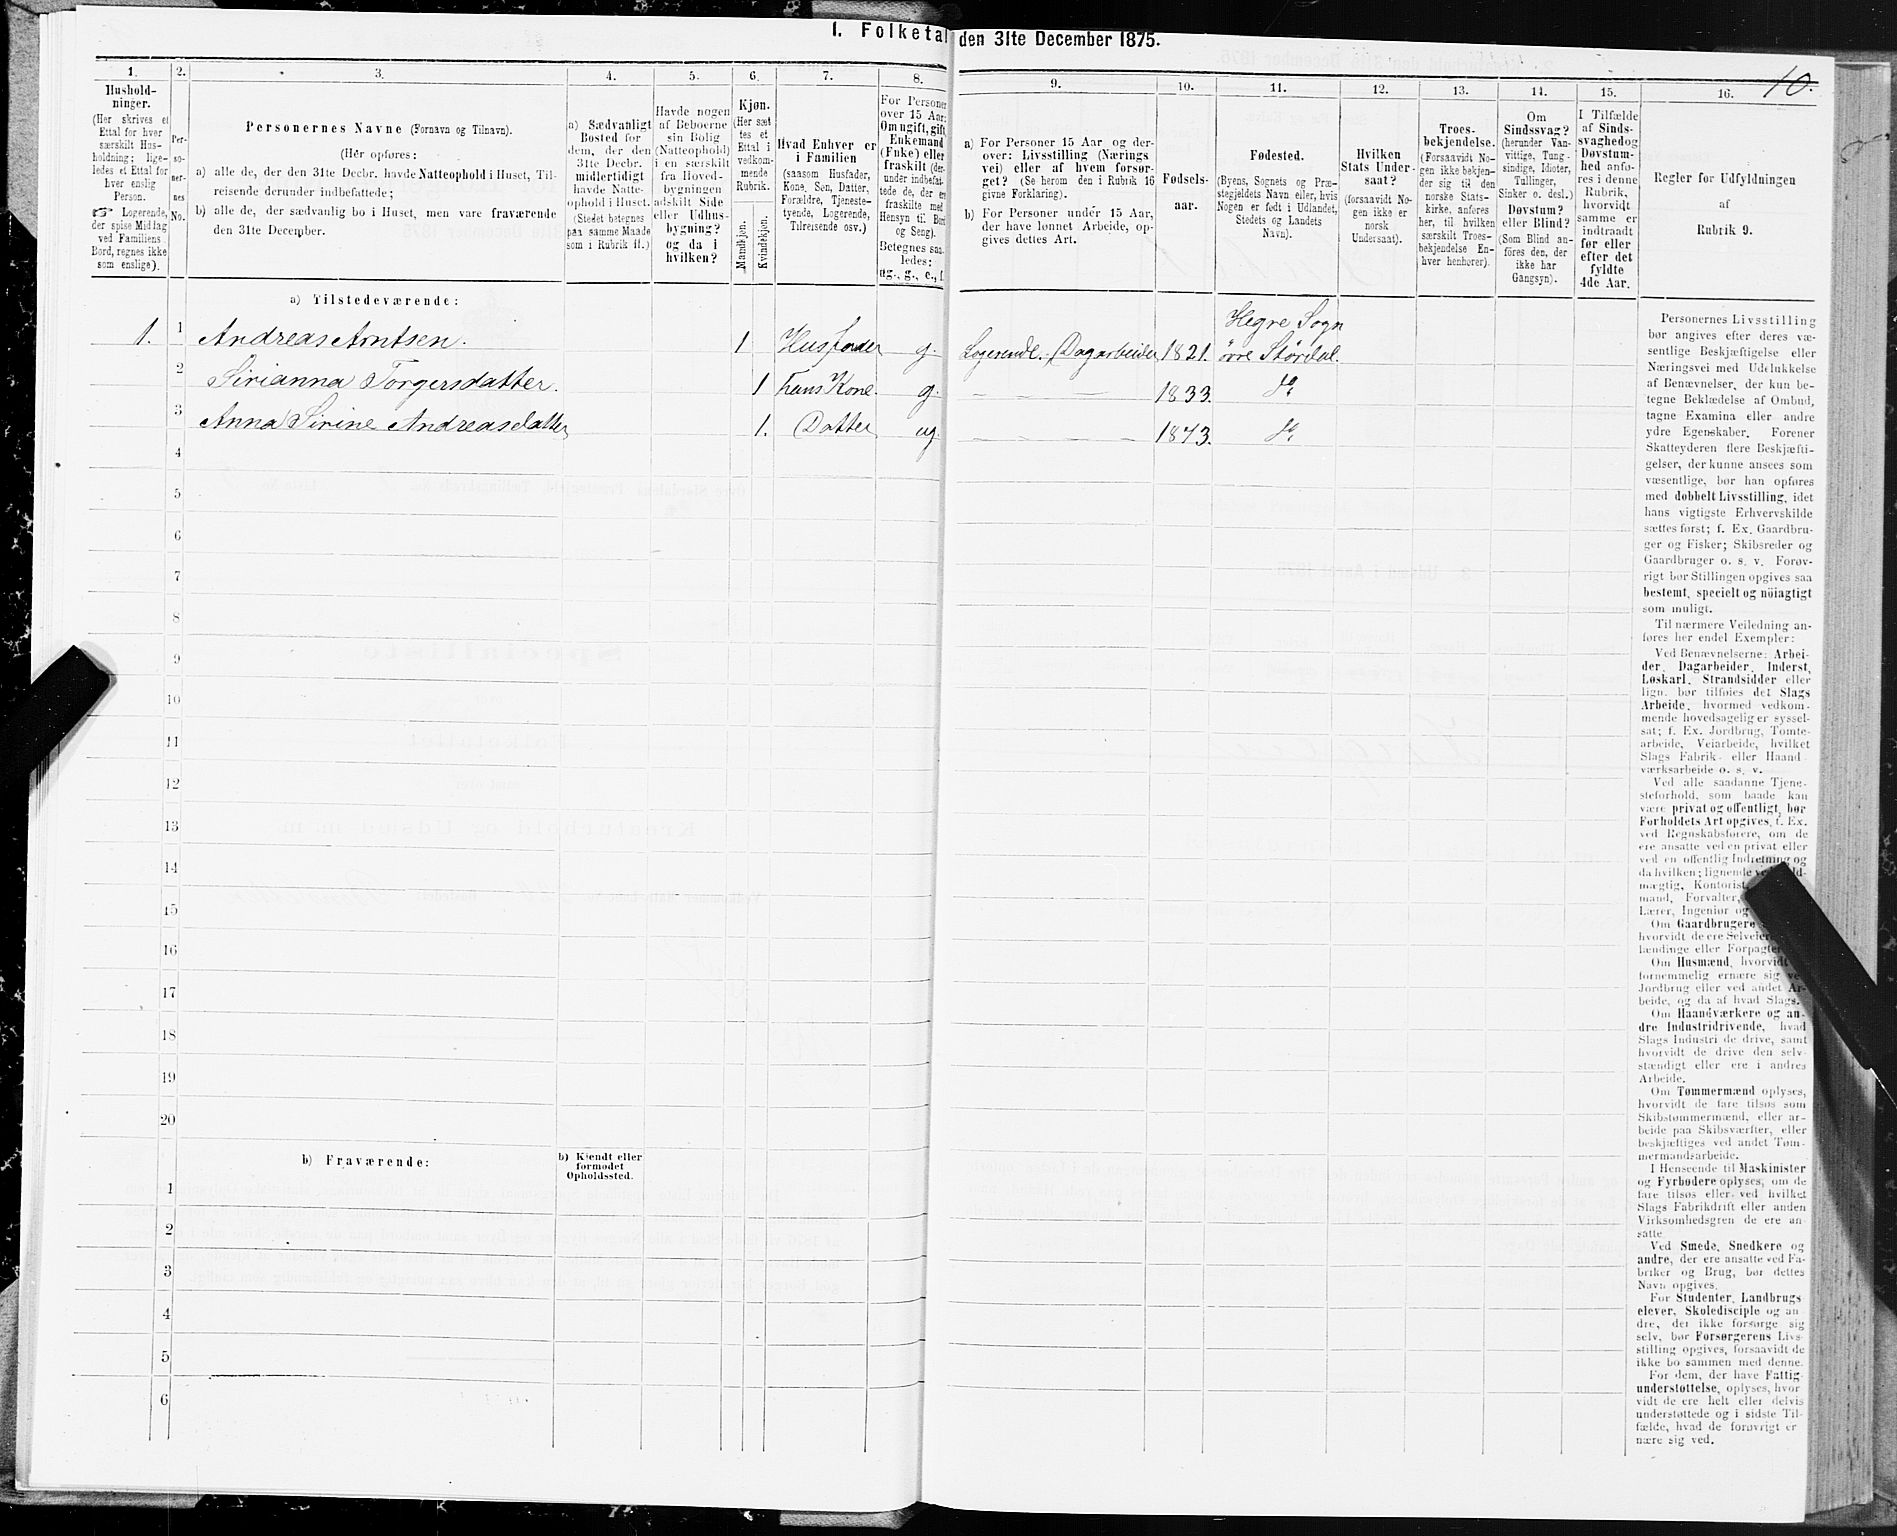 I. Folketal den 31te December 1875.
10.
1. 2. 3. 4. 5. 6. 7. 8. 9. 10. 11. 12. 13. 14. 15. 16.
Hushold-
ninger.
(Her skrives et
Ettal for hver
særskilt Hus-
holdning; lige-
ledes et Ettal for
hver enslig
Person.
☞ Logerende,
der spise Middag
ved Familiens
Bord, regnes ikke
som enslige).
Per-
so-
ner-
nes
No.
Personernes Navne (Fornavn og Tilnavn).
(Her opføres:
a) alle de, der den 31te Decbr. havde Natteophold i Huset, Til-
reisende derunder indbefattede;
b) alle de, der sædvanlig bo i Huset, men vare fraværende
den 31te December.
a) Sædvanligt
Bosted for
dem, der den
31te Decbr.
midlertidigt
havde Natte-
ophold i Huset.
(Stedet betegnes
paa samme Maade
som i Rubrik 11.)
Havde nogen
af Beboerne
sin Bolig
(Natteophold)
i en særskilt
fra Hoved-
bygningen
adskilt Side
eller Udhus-
bygning?
og da i
hvilken?
Kjøn.
(Her sæt
tes et
Ettal i
vedkom-
mende
Rubrik.
Mandkjøn.
Kvindekjøn.
Hvad Enhver er
i Familien
(saasom Husfader,
Kone, Søn, Datter,
Forældre, Tjeneste-
tyende, Logerende,
Tilreisende osv.)
For Personer
over 15 Aar:
Om ugift, gift,
Enkemand
(Enke) eller
fraskilt (der-
under indbefat-
tede de, der ere
fraskilte med
Hensyn til Bord
og Seng).
Betegnes saa-
ledes:
ug., g., e., f.
a) For Personer 15 Aar og der-
over: Livsstilling (Nærings
vei) eller af hvem forsør-
get? (Se herom den i Rubrik 16
givne Forklaring).
b) For Personer under 15 Aar,
der have lønnet Arbeide, op-
gives dettes Art.
Fødsels-
aar.
Fødested.
(Byens, Sognets og Præ-
stegjeldets Navn eller, hvis
Nogen er født i Udlandet,
Stedets og Landets
Navn).
Hvilken
Stats Under-
saat?
(forsaavidt No-
gen ikke er
norsk
Undersaat).
Troes-
bekjendelse.
(Forsaavidt No-
gen ikke bekjen-
der sig til den
norske Stats-
kirke, anføres
her, til hvilken
særskilt Troes-
bekjendelse En-
hver henhører).
Om
Sindssvag?
(herunder Van-
vittige, Tung-
sindige, Idioter,
Tullinger,
Sinker o. desl.)
Døvstum?
eller Blind?
(Som Blind an-
føres den, der
ikke har
Gangsyn).
I Tilfælde
af Sinds-
svaghed og
Døvstum-
hed anfø-
res i denne
Rubrik,
hvorvidt
samme er
indtraadt
før eller
efter det
fyldte
4de Aar.
Regler for Udfyldningen
af
Rubrik 9.
a) Tilstedeværende:
1. 1 Andreas Arntsen. 1 Husfader g. Logerende. Dagarbeider 1821. Hegre Sogn
øvre Størdal.
2 Sirianna Torgersdatter. 1 hans Kone. g. — — — 1833. do
3 Anna Sirine Andreasdatter 1. Datter ug. — — — 1873. do
4
5
6
7
8
9
10
11
12
13
14
15
16
17
18
19
20
b) Fraværende:
b) Kjendt eller
formodet
Opholdssted.
1
2
3
4
5
6
Personernes Livsstilling
bør angives efter deres væ-
sentlige Beskjæftigelse eller
Næringsvei med Udelukkelse
af Benævnelser, der kun be-
tegne Beklædelse af Ombud,
tagne Examina eller andre
ydre Egenskaber. Forener
Skatteyderen flere Beskjæfti-
gelser, der kunne ansees som
væsentlige, bør han opføres
med dobbelt Livsstilling, idet
hans vigtigste Erhvervskilde
sættes først; f. Ex. Gaardbru-
ger og Fisker; Skibsreder og
Gaardbruger o. s. v. Forøv-
rigt bør Stillingen opgives saa
bestemt, specielt og nöiagtigt
som muligt.
Til nærmere Veiledning an-
føres her endel Exempler:
Ved Benævnelserne: Arbei-
der, Dagarbeider, Inderst,
Løskarl, Strandsidder eller
lign. bør tilføies det Slags
Arbeide, hvormed vedkom-
mende hovedsagelig er syssel-
sat; f. Ex. Jordbrug, Tomte-
arbeide, Veiarbeide, hvilket
Slags Fabrik- eller Haand-
værksarbeide o. s. v.
Ved alle saadanne Tjene-
steforhold, som baade kan
være privat og offentligt, bør
Forholdets Art opgives, f. Ex.
ved Regnskabsførere, om de
ere ansatte ved en privat eller
ved en offentlig Indretning og
da hvilken; lignende ved
mægtig, Kontorist,
mand, Forvalter,
Lærer, Ingeniør og
Om Gaardbrugere
hvorvidt de ere Selveiere
lændinge eller Forpagtere
Om Husmænd, hvorvidt
fornemmelig ernære sig ved
Jordbrug eller ved andet Ar-
beide, og da af hvad Slags.
Om Haandværkere og an-
dre Industridrivende, hvad
Slags Industri de drive, samt
hvorvidt de drive den selv-
stændigt eller ere i andres
Arbeide.
Om Tømmermænd oplyses,
hvorvidt de fare tilsøs som
Skibstømmermænd, eller ar-
beide paa Skibsværfter, eller
beskjæftiges ved andet Tøm-
mermandsarbeide.
I Henseende til Maskinister
og Fyrbødere oplyses, om de
fare tilsøs eller ved hvilket
Slags Fabrikdrift eller anden
Virksomhedsgren de ere an-
satte.
Ved Smede, Snedkere og
andre, der ere ansatte ved Fa-
briker og Brug, bør dettes
Navn opgives.
For Studenter, Landbrugs-
elever, Skoledisciple og an-
dre, der ikke forsørge sig
selv, bør Forsørgerens Livs-
stilling opgives, forsaavidt de
ikke bo sammen med denne.
For dem, der have Fattig-
understøttelse, oplyses, hvor-
vidt de ere helt eller delvis
understøttede og i sidste Til-
fælde, hvad de forøvrigt er-
nære sig ved.